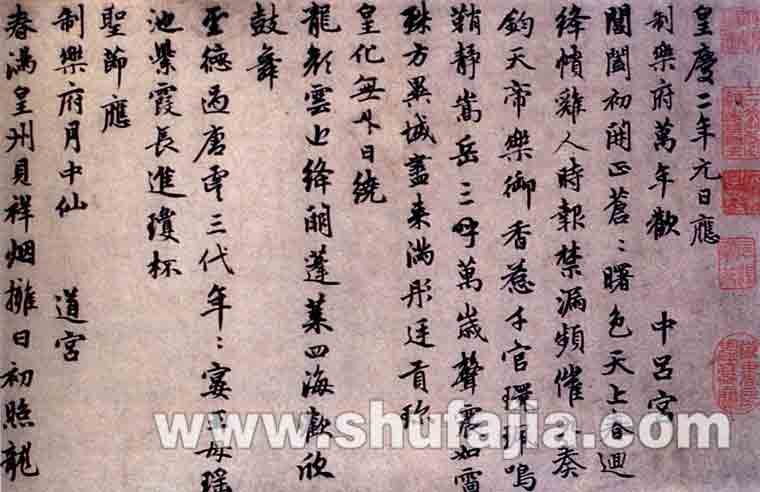 皇慶二年元日應
制樂府萬年歡 中呂宮
閶闔初開正蒼〻曙色天上春迴
絳幘雞人時報禁漏頻催奏
鈞天帝樂御香惹千官環珮鳴
鞘靜嵩岳三呼萬歲聲震如雷
殊方異域盡来滿彤廷貢珍
皇化無外日繞
龍顏雲近絳闕蓬萊四海歡欣
鼓舞
聖德過唐虞三代年〻宴王母瑤
池紫霞長進瓊杯
聖節應
制樂府月中仙 道宮
春滿皇州見祥烟擁日初照龍
www.shufajia.com